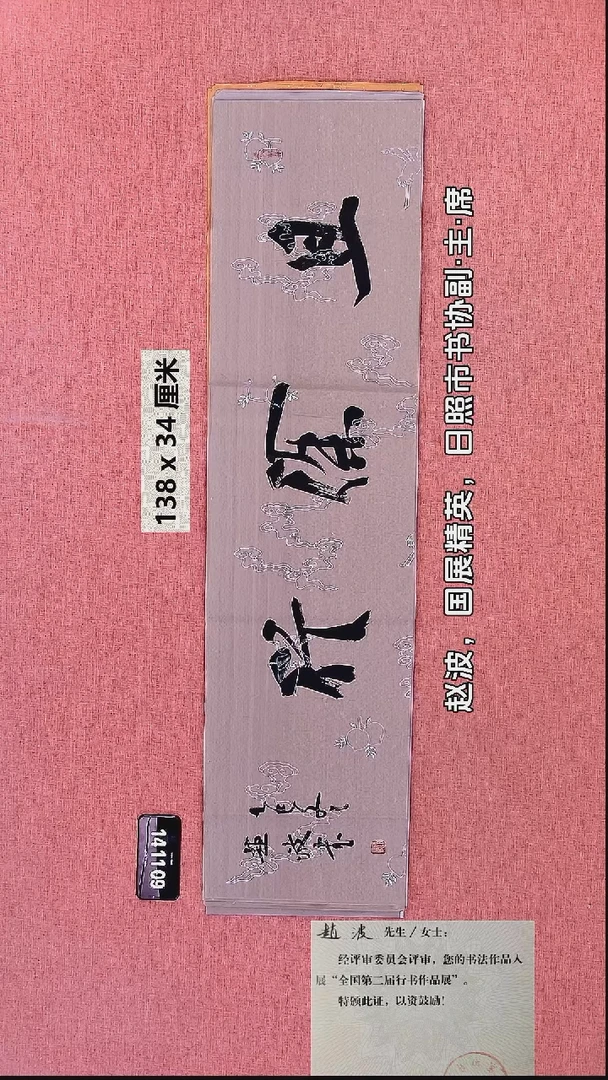 138 x 34 厘米
且徐行
趙波書
赵波，国展精英，日照市书协副·主·席
141109
趙波 先生/女士：
经评审委员会评审，您的书法作品入
展“全国第二届行书作品展”。
特颁此证，以资鼓励！